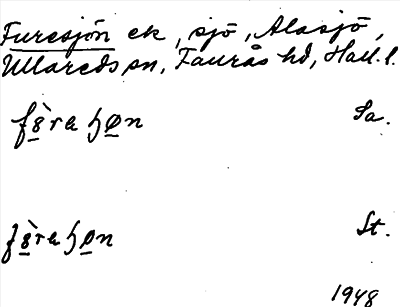 Furesjön ek, sjö, Alasjö,
Ullareds sn, Faurås hd, Hall. l.
Sa.
St.
1948